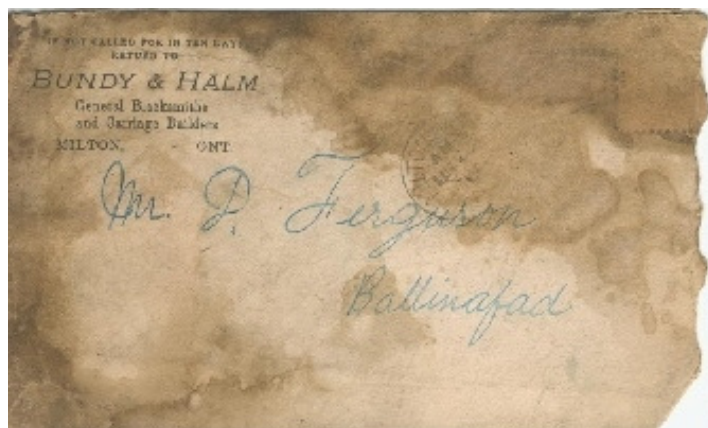 IF NOT CALLED FOR IN TEN DAYS
RETURN TO
BUNDY & HALM
General Blacksmiths
and Carriage Builders
MILTON, - ONT.
Mr. D. Ferguson
Ballinafad